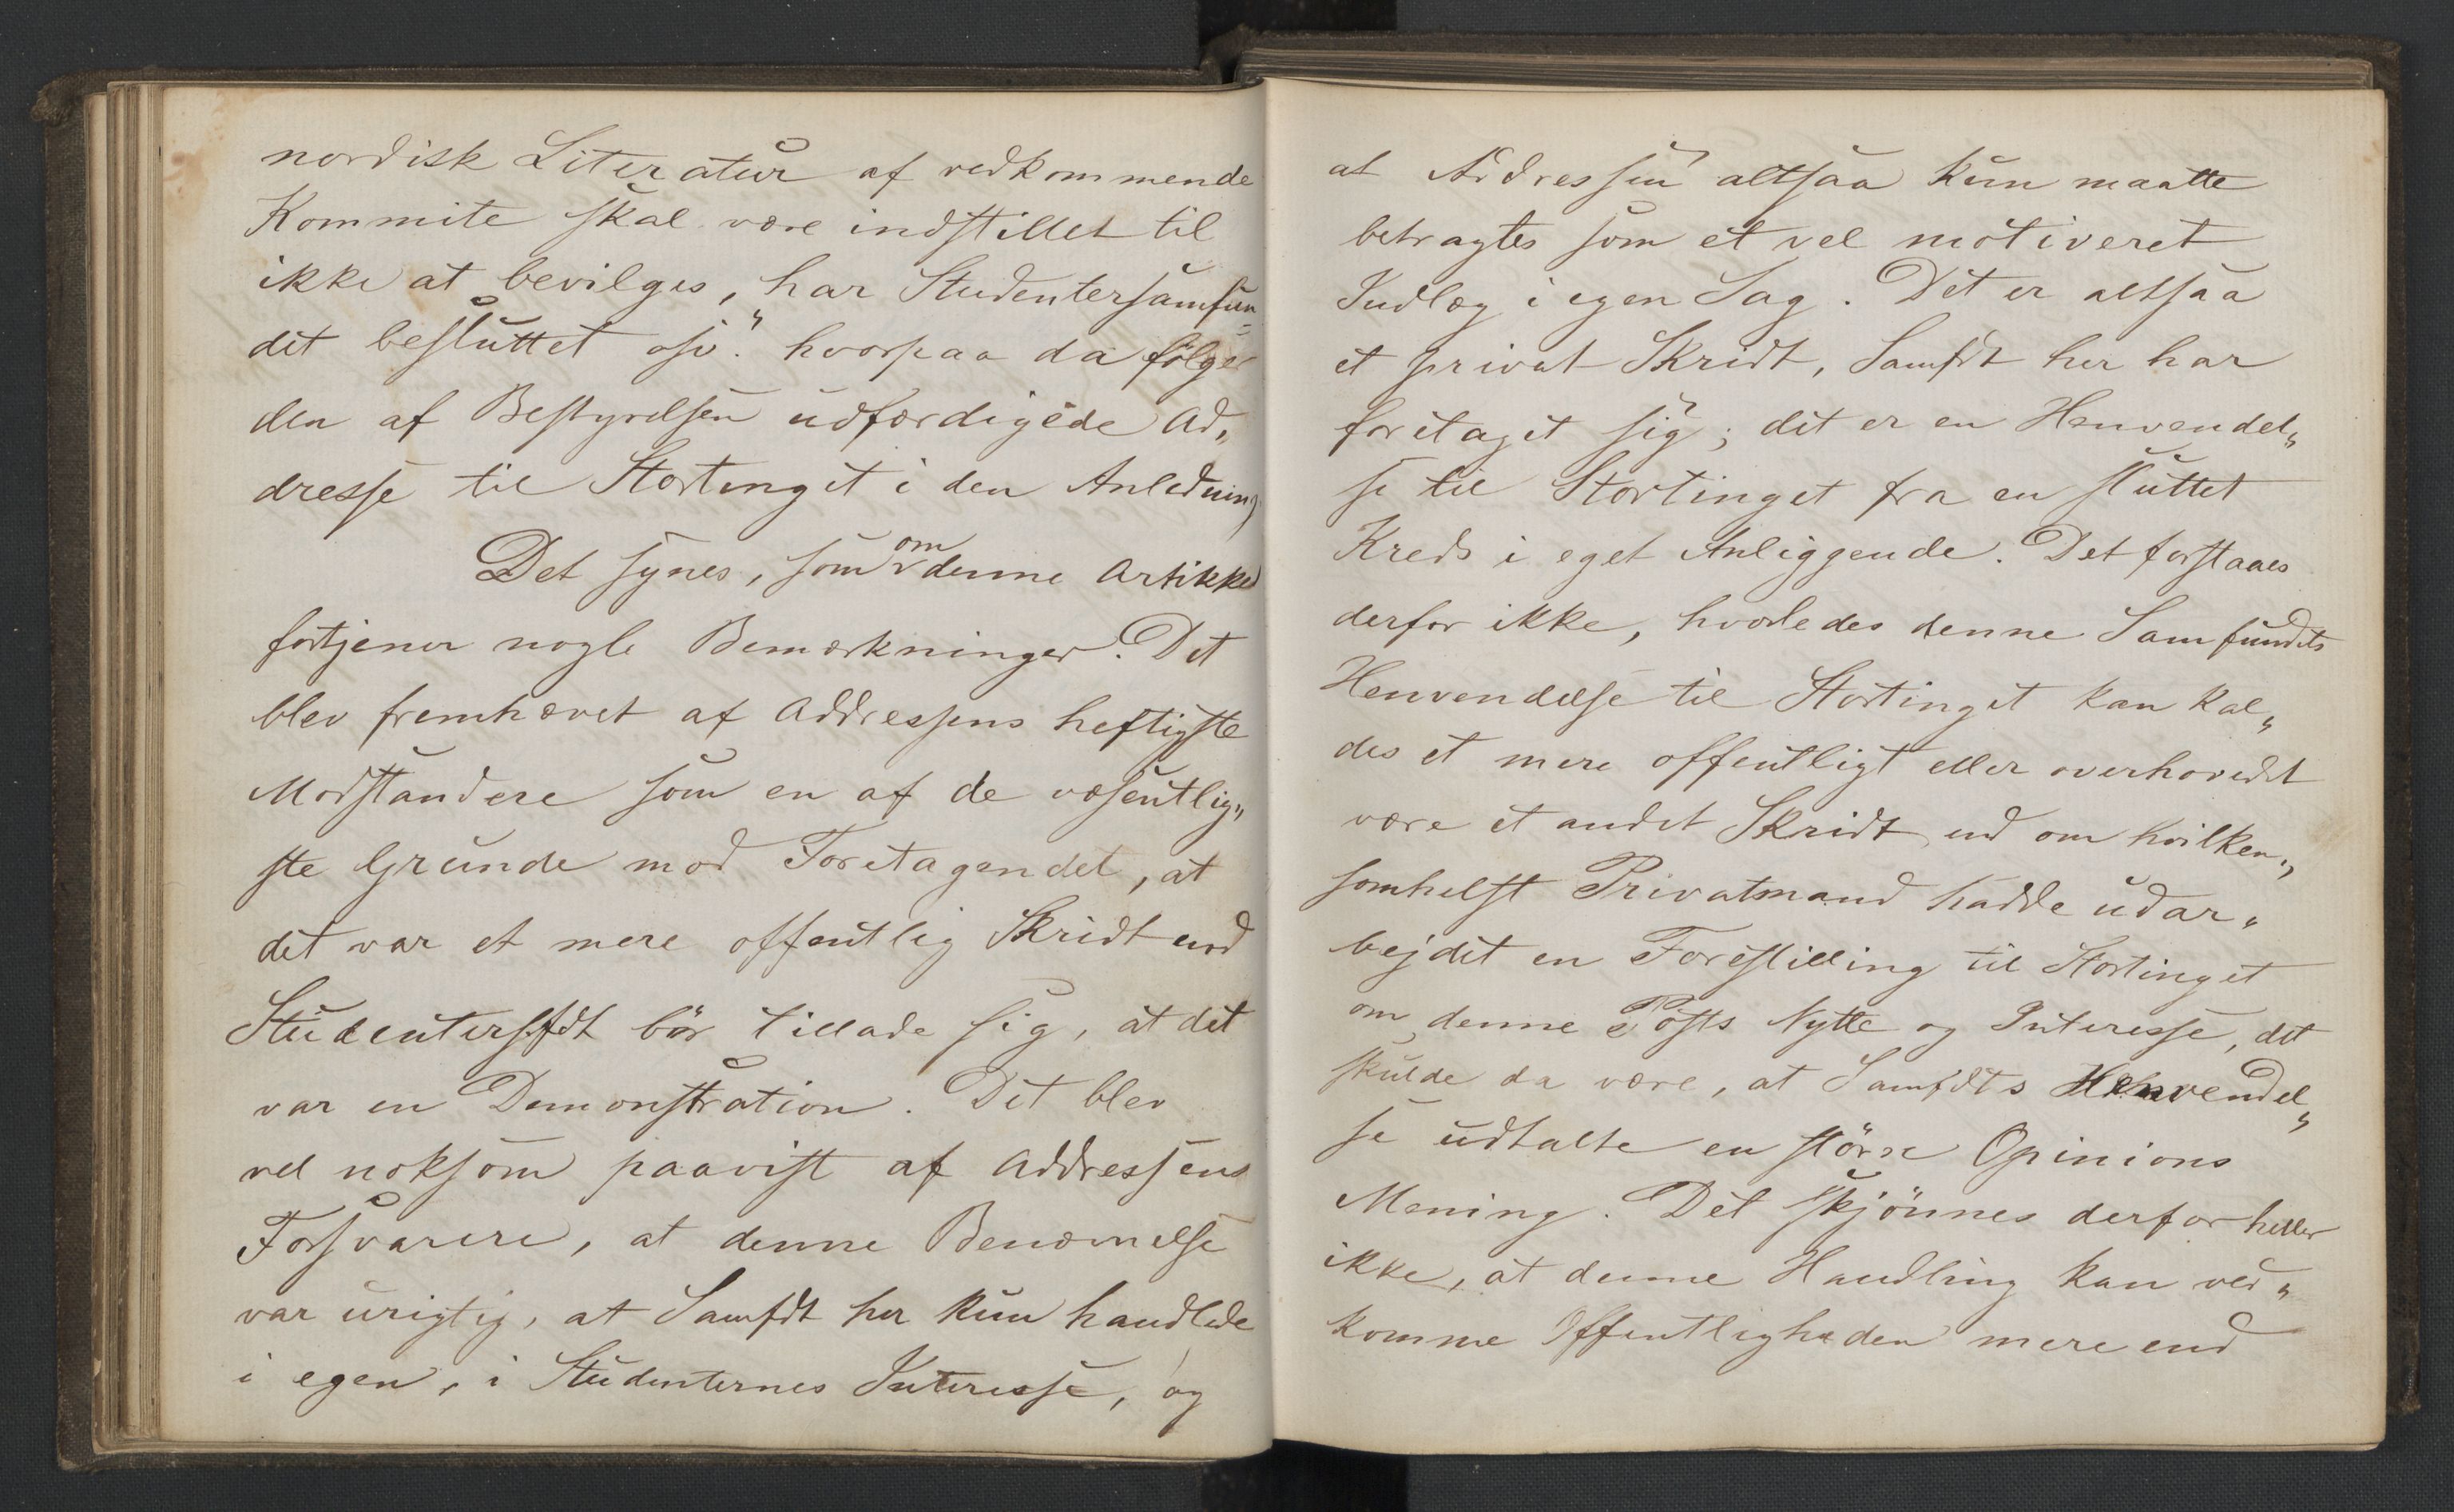 nordisk Literatur af vedkommende
Kommite skal være indstillet til
ikke at bevilges, har Studentersamfun-
det besluttet osv." hvorpaa da følger
den af Bestyrelsen udfærdigede Ad„
dresse til Stortinget i den Anledning
Det synes, som om denne Artikkel
fortjener nogle Bemærkninger. Det
blev fremhævet af Addressens heftigste
Modstandere som en af de væsentlig„
ste Grunde mod Foretagendet, at
det var et mere offentlig Skridt end
Studentersfdt bör tillade sig, at det
var en Demonstration. Det blev
vel noksom paavist af Addressens
Forsvarere, at denne Benævnelse
var urigtig, at Samfdt her kun handlede
i egen, i Studenternes Interesse, og
at Addressen altsaa kun maatte
betragtes som et vel motiveret
Indlæg i egen Sag. Det er altsaa
et privat Skridt, Samfdt her har
foretaget sig; det er en Henvendel„
se til Stortinget fra en sluttet
Kreds i eget Anliggende. Det forstaaes
derfor ikke, hvorledes denne Samfundets
Henvendelse til Stortinget kan kal„
des et mere offentligt eller overhovedet
være et andet Skridt end om hvilken„
somhelst Privatmand hadde udar„
bejdet en Forestilling til Stortinget
om denne Posts Nytte og Interesse, det
skulde da være, at Samfdts Henvendel„
se udtalte en större Opinions
Mening. Det skjönnes derfor heller
ikke, at denne Handling kan ved„
komme Offentligheden mere end